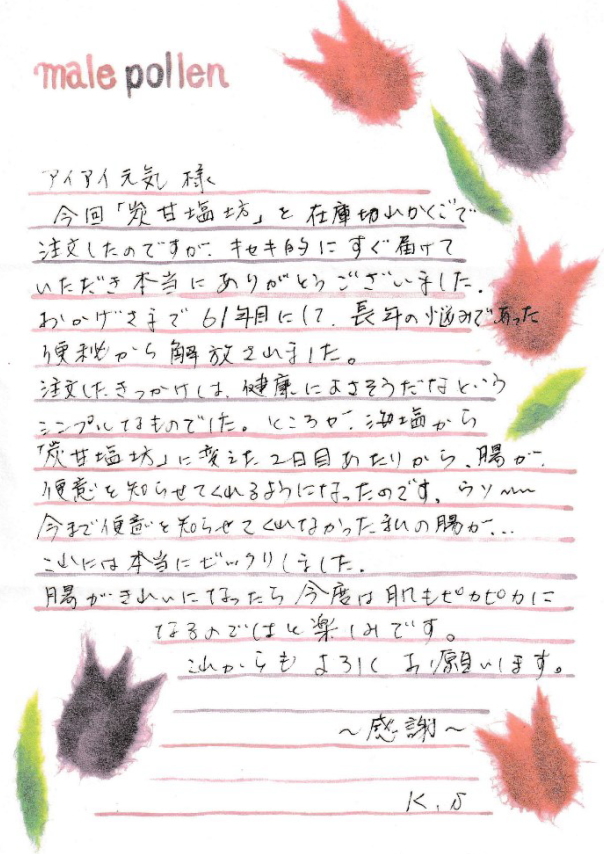 male pollen
アイアイ元気 様
今回「炭甘塩坊」を 在庫切れかくごで
注文したのですが、キセキ的に すぐ届けて
いただき 本当に ありがとうございました。
おかげさまで 61年目にして、長年の悩みであった
便秘から 解放されました。
注文したきっかけは、健康によさそうだなという
シンプルなものでした。ところが、海塩から
「炭甘塩坊」に変えた 2日目あたりから、腸が、
便意を知らせてくれるようになったのです。ウソ〜〜
今まで便意を知らせてくれなかった私の腸が...
これには 本当に ビックリしました。
腸がきれいになったら 今度は 肌もピカピカに
なるのではと楽しみです。
これからも よろしく お願いします。
〜感謝〜
K.S